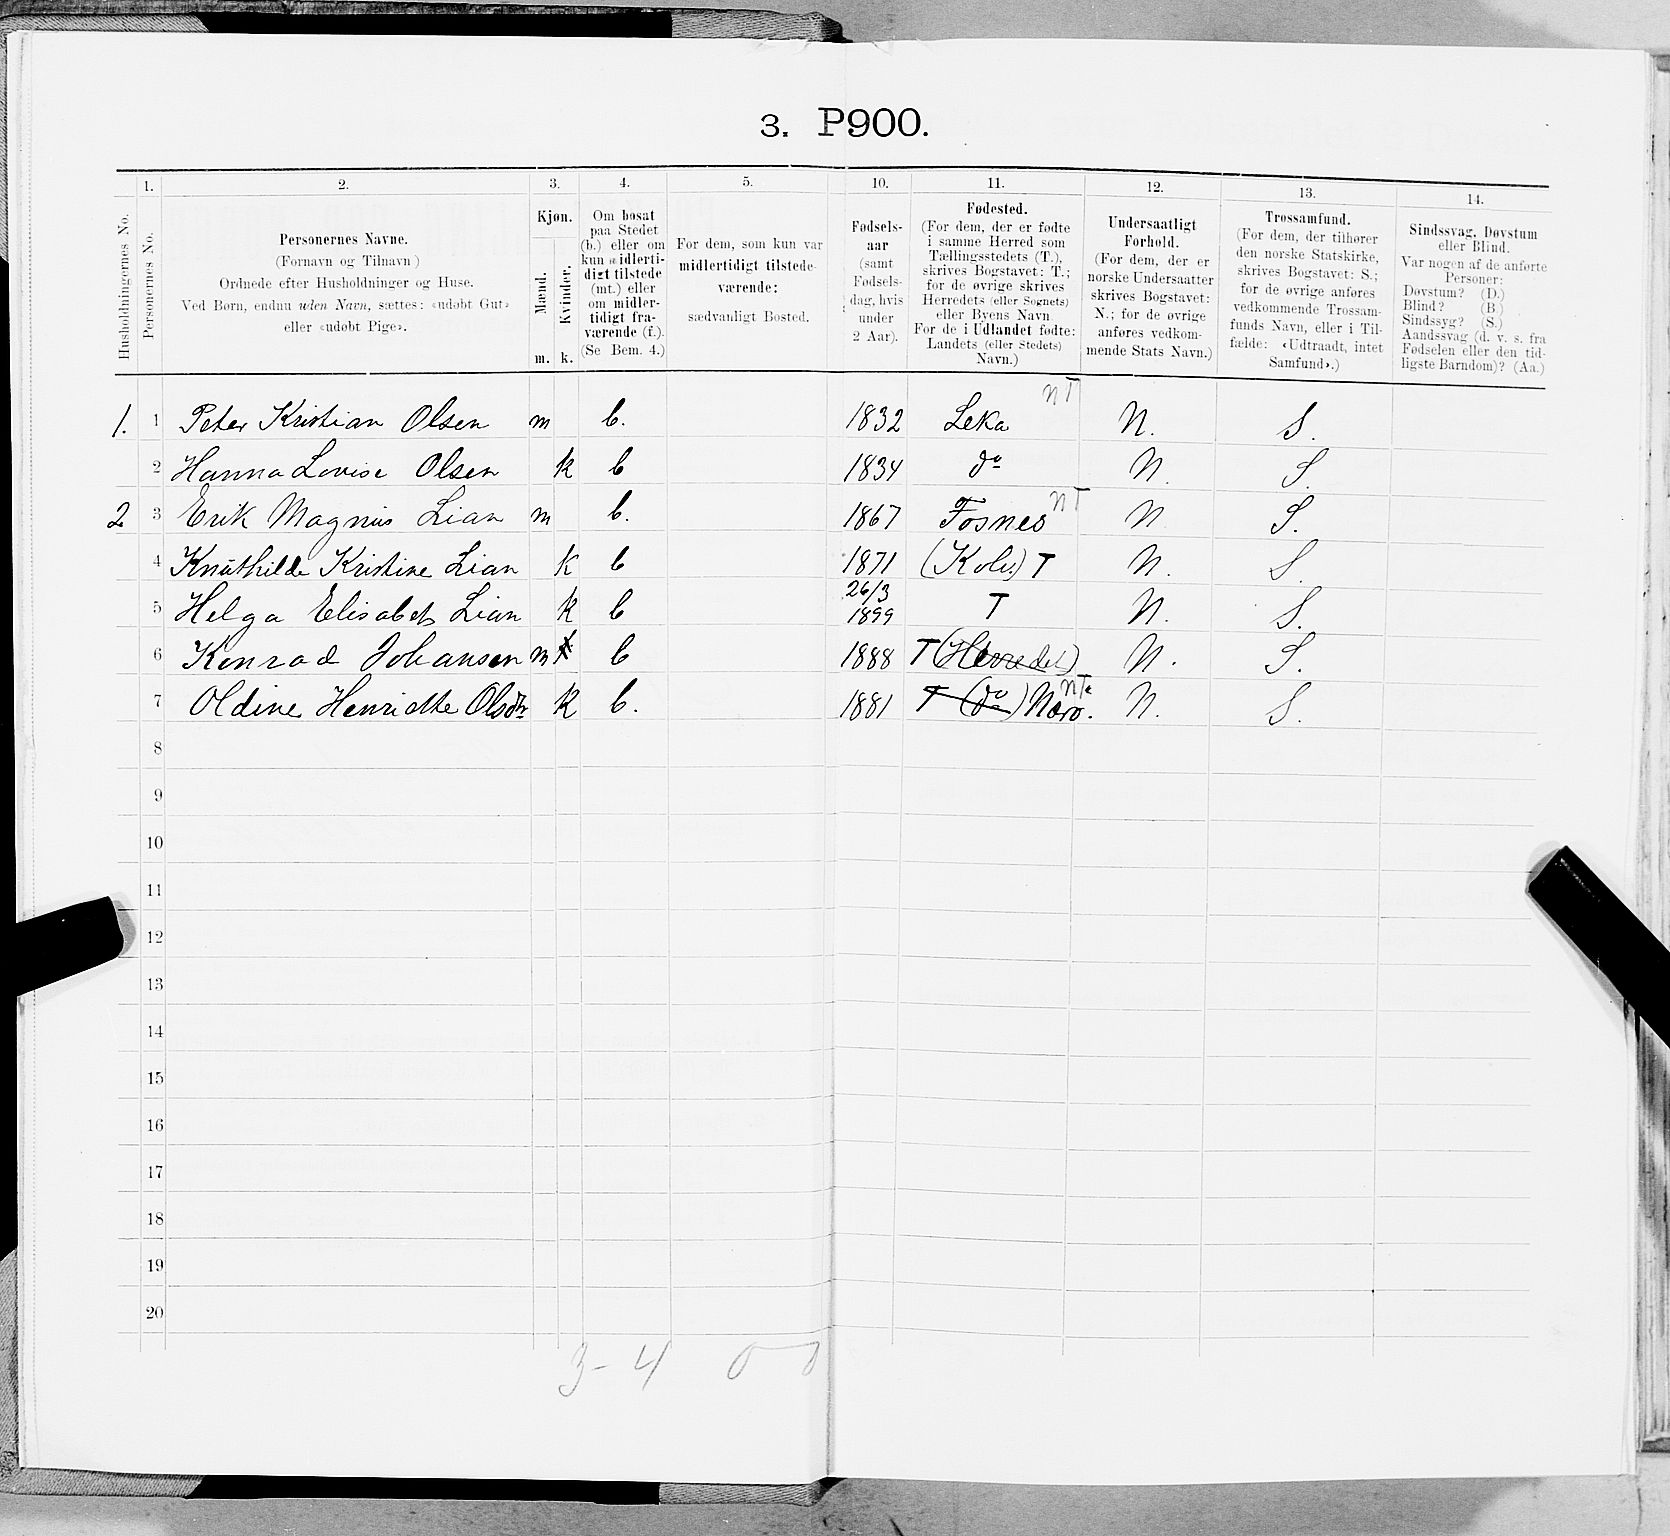 3. P900.
Husholdningernes No.
1.
Personernes No.
2.
Personernes Navne.
(Fornavn og Tilnavn)
Ordnede efter Husholdninger og Huse.
Ved Børn, endnu uden Navn, sættes: «udøbt Gut»
eller «udøbt Pige».
3.
Kjøn.
Mænd.
Kvinder.
m. k.
4.
Om bosat
paa Stedet
(b.) eller om
kun midlerti-
digt tilstede
(mt.) eller
om midler-
tidigt fra-
værende (f.).
(Se Bem. 4.)
5.
For dem, som kun var
midlertidigt tilstede-
værende:
sædvanligt Bosted.
10.
Fødsels-
aar
(samt
Fødsels-
dag, hvis
under
2 Aar).
11.
Fødested.
(For dem, der er fødte
i samme Herred som
Tællingsstedets (T.),
skrives Bogstavet: T.;
for de øvrige skrives
Herredets (eller Sognets)
eller Byens Navn.
For de i Udlandet fødte:
Landets (eller Stedets)
Navn.)
12.
Undersaatligt
Forhold.
(For dem, der er
norske Undersaatter
skrives Bogstavet:
N.; for de øvrige
anføres vedkom-
mende Stats Navn.)
13.
Trossamfund.
(For dem, der tilhører
den norske Statskirke,
skrives Bogstavet: S.;
for de øvrige anføres
vedkommende Trossam-
funds Navn, eller i Til-
fælde: «Udtraadt, intet
Samfund».)
14.
Sindssvag, Døvstum
eller Blind.
Var nogen af de anførte
Personer:
Døvstum? (D.)
Blind? (B.)
Sindssyg? (S.)
Aandssvag (d. v. s. fra
Fødselen eller den tid-
ligste Barndom)? (Aa.)
1. 1 Peter Kristian Olsen m b. 1832 Leka nT N. S.
2 Hanna Lovise Olsen k b 1834 do N. S.
2 3 Erik Magnus Lian m b. 1867 Fosnes nT N S.
4 Knuthilde Kristine Lian k b 1871 (Kolv.) T N. S.
5 Helga Elisabet Lian k b 26/3 1899 T N. S.
6 Konrad Johansen m b 1888 T (Herredet) N. S.
7 Oldine Henriette Olsdtr k b. 1881 T (do) Nærø. nT N. S.
8
9
10
11
12
13
14
15
16
17
18
19
20
3 - 4 0 0